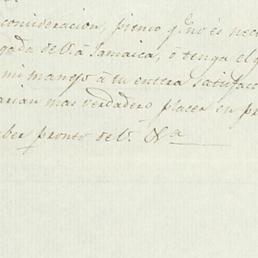 consideracion, pienso q.e no és nec
gada de V. á Jamaica, ó tenga el g
mi manejo á tu entera satisfac
arian mas verdadero placer en pr
ber pronto de V. &a